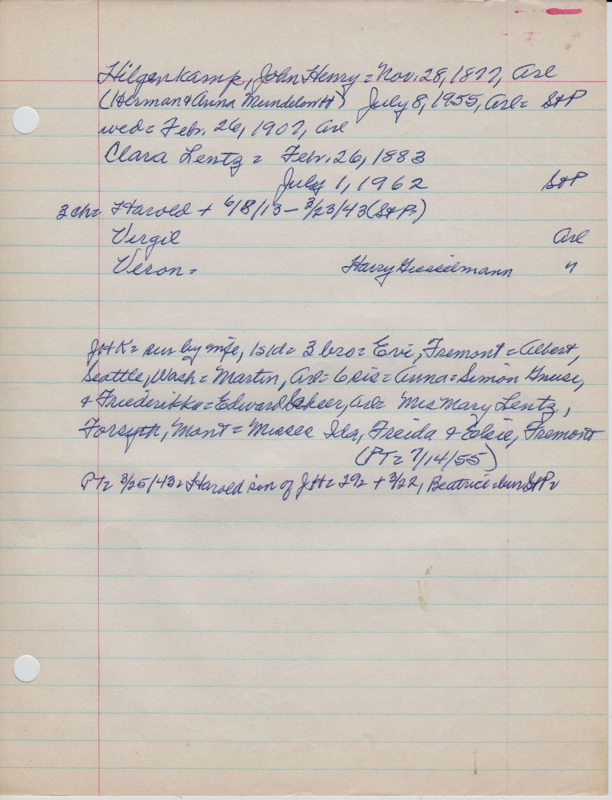 Hilgenkamp, John Henry = Nov. 28, 1877, Arl
(Herman & Anna MundelonH) July 8, 1955, Arl = StP
wed = Febr. 26, 1907, Arl
Clara Lentz = Febr. 26, 1883
July 1, 1962 StP
3 ch = Harold + 6/8/13 - 3/23/43 (StP)
Virgil Arl
Veron = Harry Giesselmann "
JHK = sur by wife, 1s 1d = 3 bro = Evi, Fremont = Albert,
Seattle, Wash = Martin, Arl = 6 sis = Anna = Simon Gnuse,
& Friederikka = Edward Arl = Mrs Mary Lentz,
Forsyth, Mont = Misses Ida, Freida & Elsie, Fremont
(PT = 7/14/55)
PT = 3/25/43 = Harold son of JH = 29 + 3/22, Beatrice = bur StP =